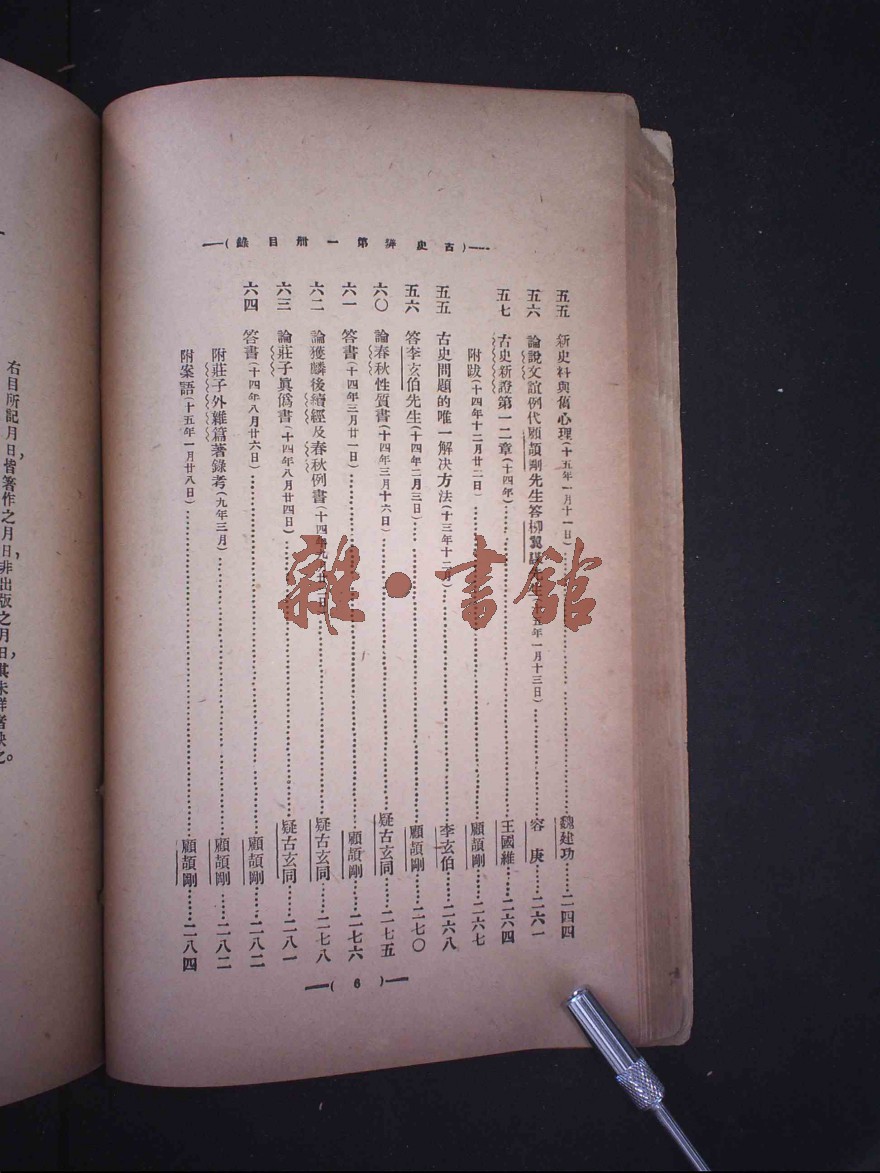 (古史辨第一冊目錄)
五五 新史料與舊心理(十五年一月十一日) 魏建功 二四四
五六 論說文誼例代顧頡剛先生答柳翼謀先生 五年一月十三日) 容庚 二六一
五七 古史新證第一二章(十四年) 王國維 二六四
附跋(十四年十二月廿二日) 顧頡剛 二六七
五五 古史問題的唯一解决方法(十三年十二 李玄伯 二六八
五六 答李玄伯先生(十四年二月三日) 顧頡剛 二七〇
六〇 論春秋性質書(十四年三月十六日) 疑古玄同 二七五
六一 答書(十四年三月廿一日) 顧頡剛 二七六
六二 論獲麟後續經及春秋例書(十四年九 日) 疑古玄同 二七八
六三 論莊子眞僞書(十四年八月廿四日) 疑古玄同 二八一
六四 答書(十四年八月廿六日) 顧頡剛 二八二
附莊子外雜篇著錄考(九年三月) 顧頡剛 二八二
附案語(十五年一月廿八日) 顧頡剛 二八四
(6)
右目所記月日,皆著作之月日,非出版之月日,其未詳者缺之。
雜·書館